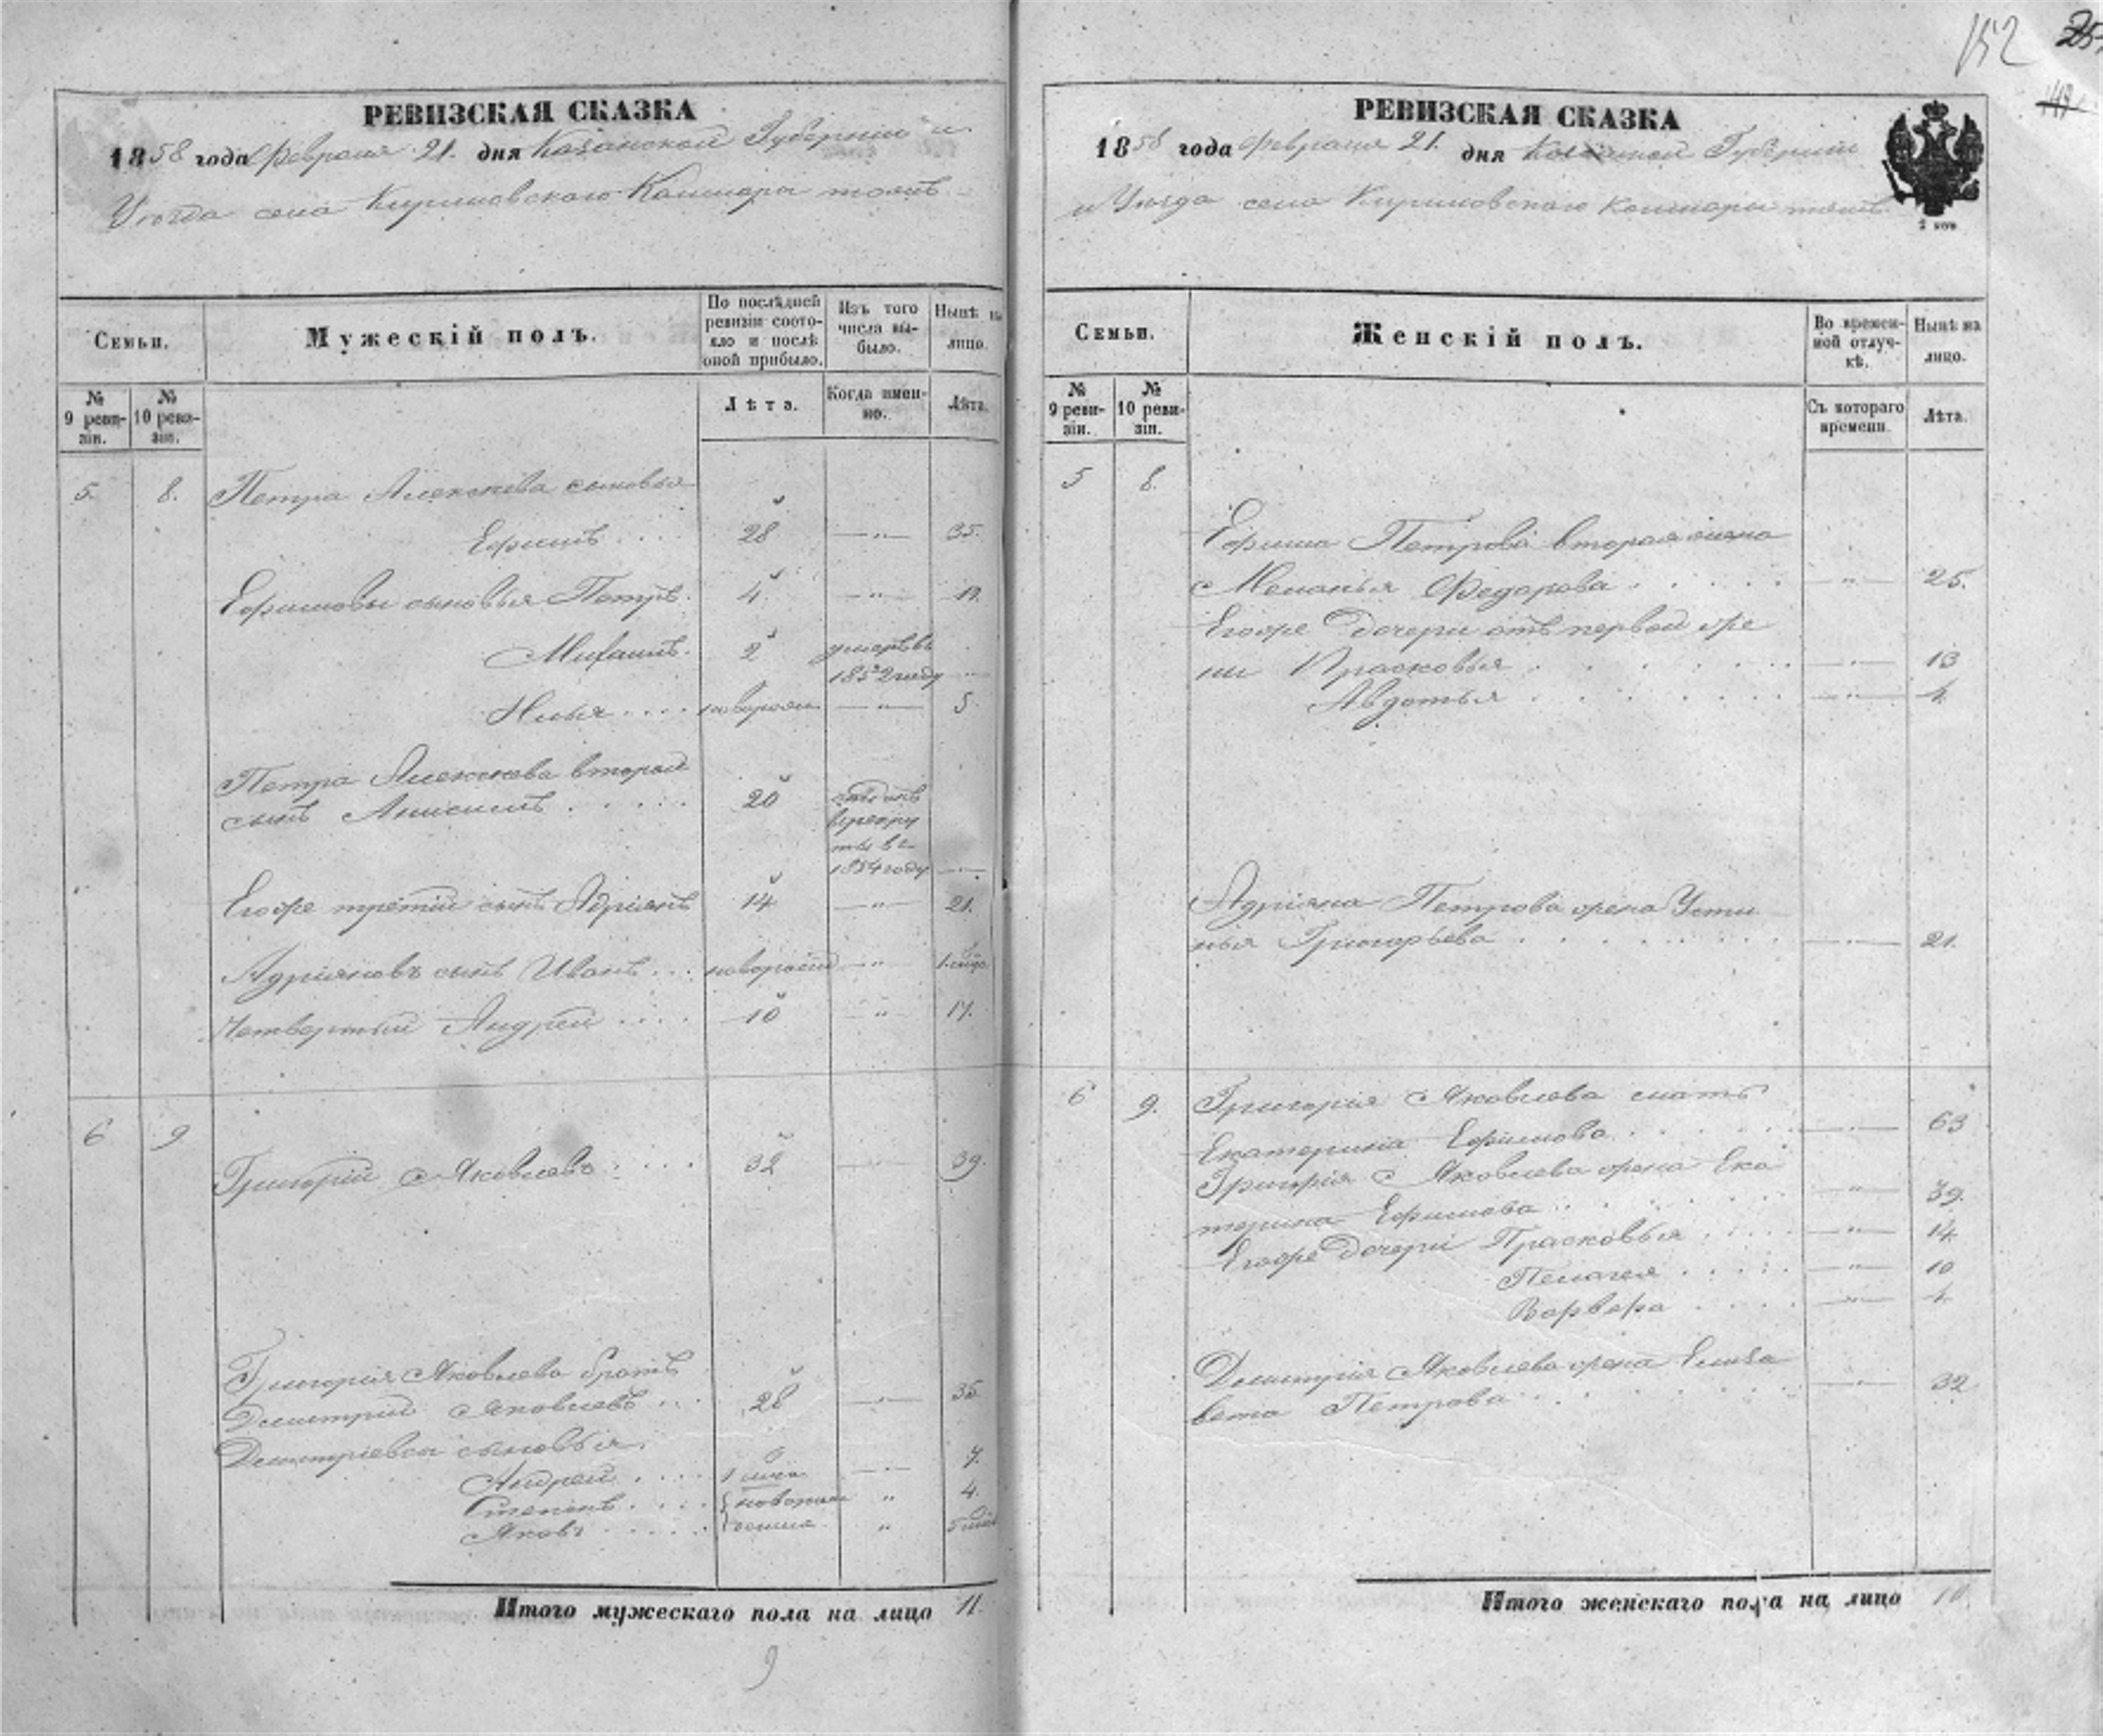 152
РЕВИЗСКАЯ СКАЗКА
1858 года Февраля 21. дня Казанской Губернии и
Уѣзда села Кошкары тожъ
Семьи.
Мужескій полъ.
По послѣдней ревизіи состояло и послѣ оной прибыло.
Изъ того числа выбыло.
Нынѣ на лицо.
№ 9 ревизіи.
№ 10 ревизіи.
Лѣта.
Когда именно.
Лѣта.
5. 8. Петра Алексѣева сыновья
Ефимъ 28 35.
Ефимовы сыновья Петръ. 4
Михаилъ. 2 умеръ въ
1852 году
Илья новорож 5
Петра Алексѣева второй
сынъ Анисимъ 20 отданъ
в рекру
ты в
1854 году
Егоже третій сынъ Адріянъ 14 21.
Адріяновъ сынъ Иванъ новорож
Четвертый Андрей 10 17.
6 9
Григорій Яковлевъ 32 39.
Григорія Яковлева братъ
Дмитрий Яковлевъ 28 35
Дмитріевы сыновья
Андрей 7.
Степанъ новорож 4.
Яковъ
Итого мужескаго пола на лицо 11.
9
РЕВИЗСКАЯ СКАЗКА
1858 года Февраля 21. дня Казанской Губерніи
и Уѣзда села Кошкары тожъ
2 коп
Семьи.
Женскій полъ.
Во временной отлучкѣ.
Нынѣ на лицо.
№ 9 ревизіи.
№ 10 ревизіи.
Съ котораго времени.
Лѣта.
5 8.
Ефима Петрова вторая жена
Меланья Федорова 25.
Егоже дочери отъ первой же
ны Прасковья 13
Авдотья 4
Адріяна Петрова жена Усти
нья Григорьева 21.
6 9. Григорія Яковлева мать
Екатерина Ефимова 63
Григорія Яковлева жена Ека
терина Ефимова 39.
Егоже дочери Прасковья 14
Пелагея 10
Варвара 4
Дмитрія Яковлева жена Елиза
вета Петрова 32
Итого женскаго пола на лицо 10.